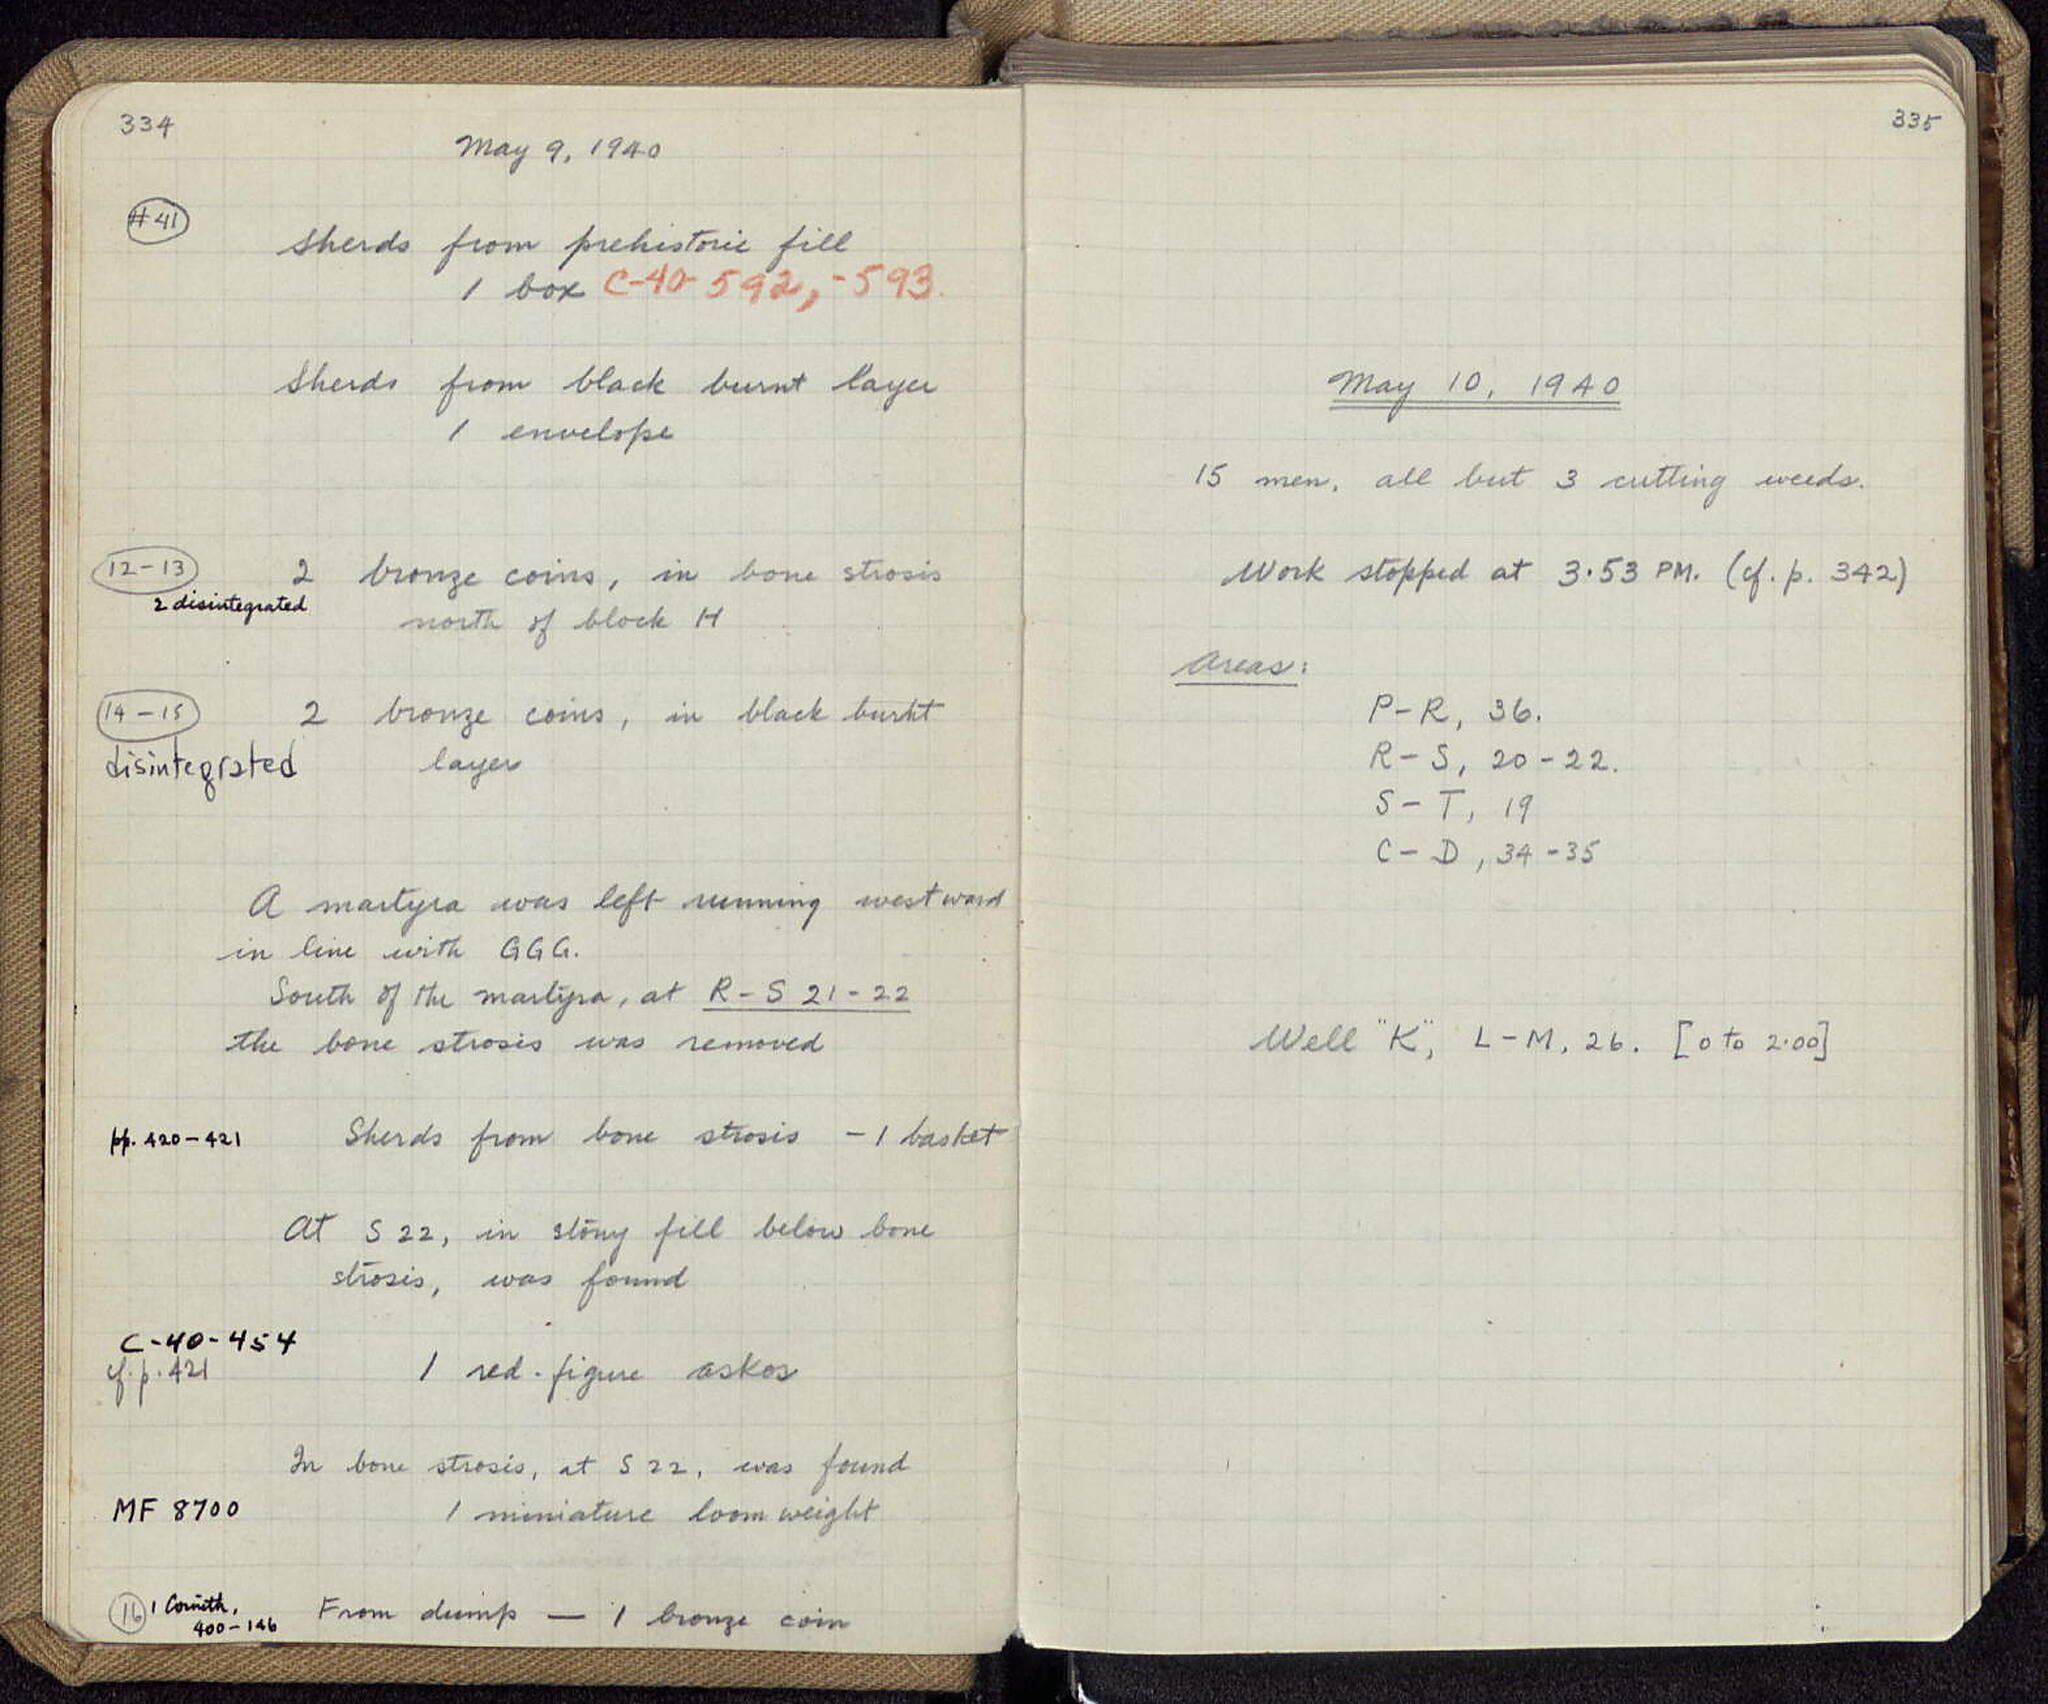 334
May 9, 1940
#41
Sherds from prehistoric fill
1 box C-40-592, -593.
Sherds from black burnt layer
1 envelope
12-13 2 bronze coins, in bone strosis
2 disintegrated
north of block H
14-15 2 bronze coins, in black burnt
disintegrated layer
A martyra was left running westward
in line with GGG.
South of the martyra, at R-S 21-22
the bone strosis was removed
pp. 420-421 Sherds from bone strosis - 1 basket
At S 22, in stony fill below bone
strosis, was found
C-40-454
cf. p. 421 1 red-figure askos
In bone strosis, at S 22, was found
MF 8700 1 miniature loom weight
16 1 Corinth, From dump — 1 bronze coin
400-146
335
May 10, 1940
15 men, all but 3 cutting weeds.
Work stopped at 3.53 PM. (cf. p. 342)
Areas:
P-R, 36.
R-S, 20-22.
S-T, 19
C-D, 34-35
Well "K", L-M, 26. [0 to 2.00]